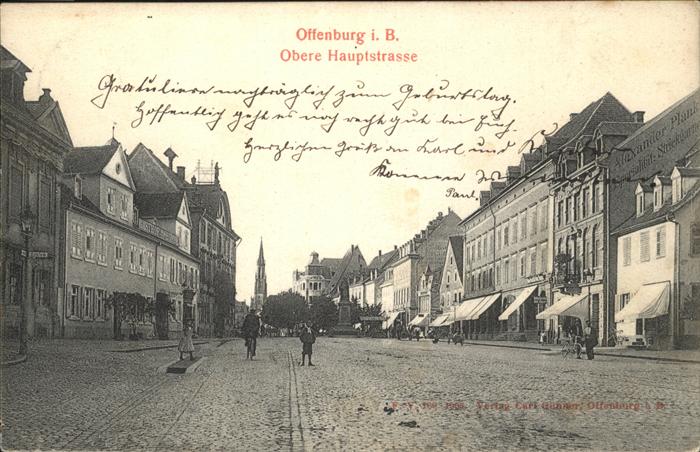 Offenburg i. B.
Obere Hauptstrasse
Gratuliere nachträglich zum Geburtstag.
Hoffentlich geht es noch recht gut bei Euch.
Herzlichen Gruß an Karl und
Paul.
Alexander
Verlag Carl Offenburg i. B.